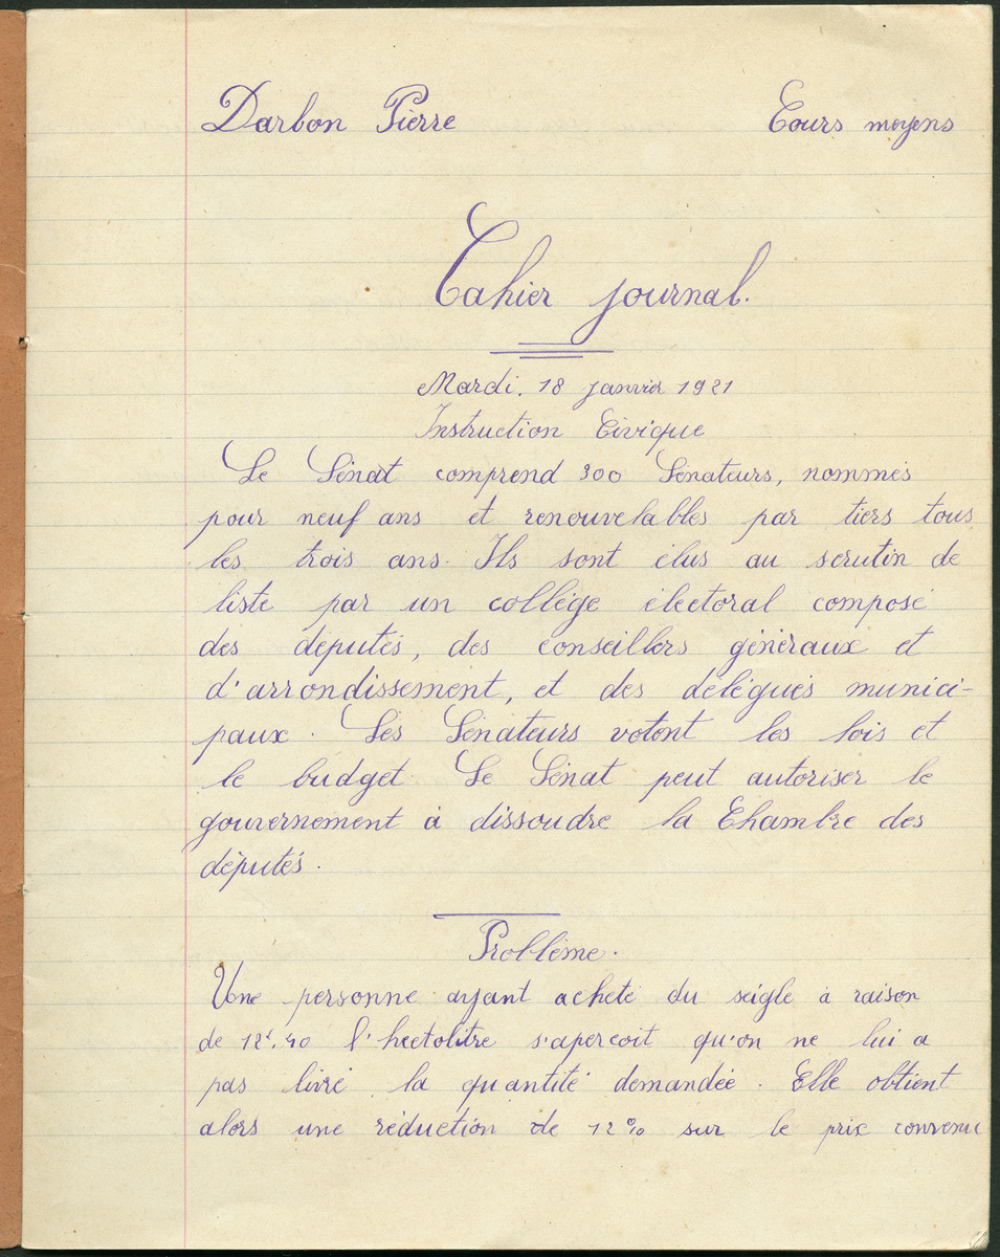 Darbon Pierre
Cours moyens
Cahier journal.
Mardi. 18 janvier 1921
Instruction Civique
Le Sénat comprend 300 Sénateurs, nommés
pour neuf ans et renouvelables par tiers tous
les trois ans. Ils sont élus au scrutin de
liste par un collège électoral composé
des députés, des conseillers généraux et
d'arrondissement, et des délégués munici-
paux. Les Sénateurs votent les lois et
le budget Le Sénat peut autoriser le
gouvernement à dissoudre la Chambre des
députés.
Problème.
Une personne ayant acheté du seigle à raison
de 12f.40 l'hectolitre s'apercoit qu'on ne lui a
pas livré la quantité demandée. Elle obtient
alors une réduction de 12% sur le prix convenu